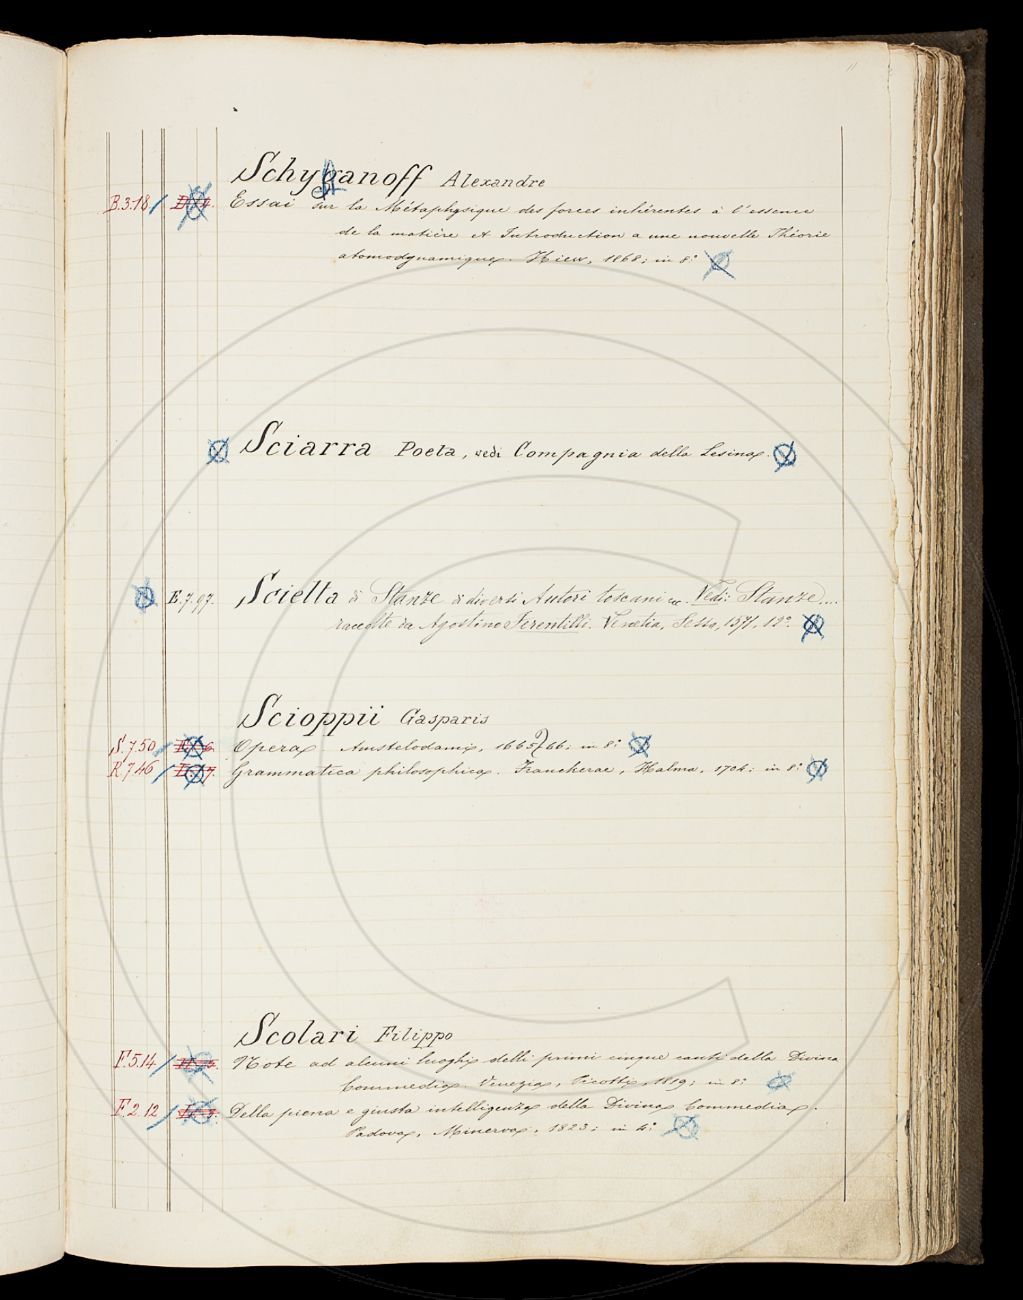 Schyganoff Alexandre
B.3.18 Essai sur la Métaphysique des forces inhérentes à l'essence
de la matière et Introduction a une nouvelle Théorie
atomodynamique. Kiew, 1868; in 8°
Sciarra Poeta, vedi Compagnia della Lesina.
E.7.97. Scielta di Stanze di diversi Autori toscani ec. Vedi: Stanze...
raccolte da Agostino Ferentilli. Venetia, Sessa, 1571. 12°.
Scioppii Gasparis
S.7.50 Opera. Amstelodami, 1665/66; in 8°
R.7.46 Grammatica philosophica. Franckerae, Halma, 1704; in 8°
Scolari Filippo
F.5.14 Note ad alcuni luoghi delli primi cinque canti della Divina
Commedia. Venezia, Picotti, 1819; in 8°
F.2.12 Della piena e giusta intelligenza della Divina Commedia.
Padova, Minerva, 1823; in 4°